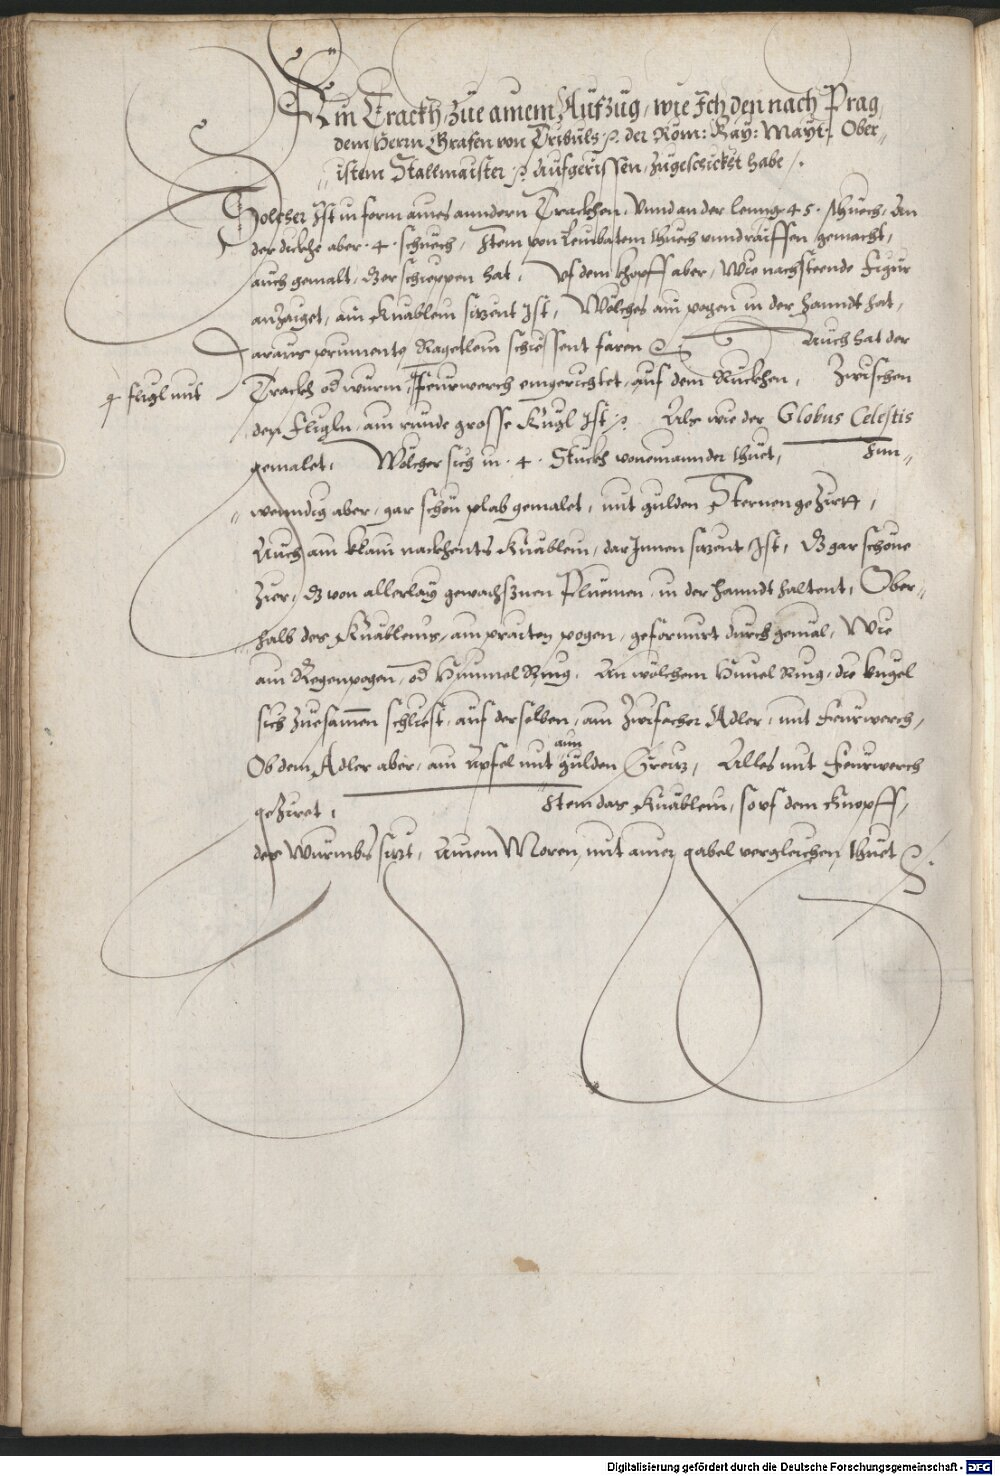 Ain Trackh, zue ainem Aufzug, wie Ich den nach Prag,
dem Herrn Grafen von Tribuls p. der Röm: Kay: Mayt. Ober=
istem Stallmaister p. Aufgerissen, zugeschickht habe /.
Solcher Ist in form aines anndern Trackhen, Unnd an der leng. 45. schuech, An
der dickhe aber. 4. schuech, Item von Leinbatem thuech unnd raiffen, gemacht,
auch gemalt, Wer schieppen hat, Uf dem khopff aber, Wie nachsteende Figur
anzaiget, ain Knäblein sitzent Ist, Wölches ain pogen in der hanndt hat,
Daraus prinnente Ragetlein schiessent faren Auch hat der
4 fligl mit
Trackh od wurm, Feurwerch eingerichtet, auf dem Ruckhen, Zwischen
den Fligln, ain runde grosse Kugl Ist p. Als wie der Globus Celestis
gemalet, Wölcher sich in. 4. Stuckh voneinannder thuet, Inn=
wenndig aber, gar schön plab gemalet, mit gulden Sternen geziert,
Auch ain klain nackhents Knäblein, darInnen sitzent Ist, gar schöne
Zier, von allerlay gewachsznen Pluemen, in der hanndt haltent, Ober=
halb des Knäbleins, ain praiten pogen, geformirt durch gemäl, Wie
ain Regenpogen, od Himmel Ring, An wölchem Himel Ring, die kugel
sich zuesamen schliest, auf derselben, ain Zwifacher Adler, mit Feurwerch,
Ob dem Adler aber, ain Apfel mit ainn gulden Creitz, Alles mit Feurwerch
geziret, Item das Knäblein, so uf dem Knopff,
des Wurmbs sitzt, Ainem Moren, mit ainer gabel vergleichen thuet
Digitalisierung gefördert durch die Deutsche Forschungsgemeinschaft - DFG